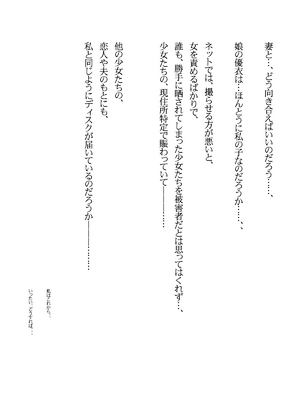 妻と…、どう向き合えばいいのだろう…、
娘の優衣は…ほんとうに私の子なのだろうか…、
ネットでは、撮らせる方が悪いと、
女を責めるばかりで、
誰も、勝手に晒されてしまった少女たちを被害者だとは思ってはくれず…、
少女たちの、現住所特定で賑わっていて―――……
他の少女たちの、
恋人や夫のもとにも、
私と同じようにディスクが届いているのだろうか―――……
私はこれから…、
いったい、どうすれば…